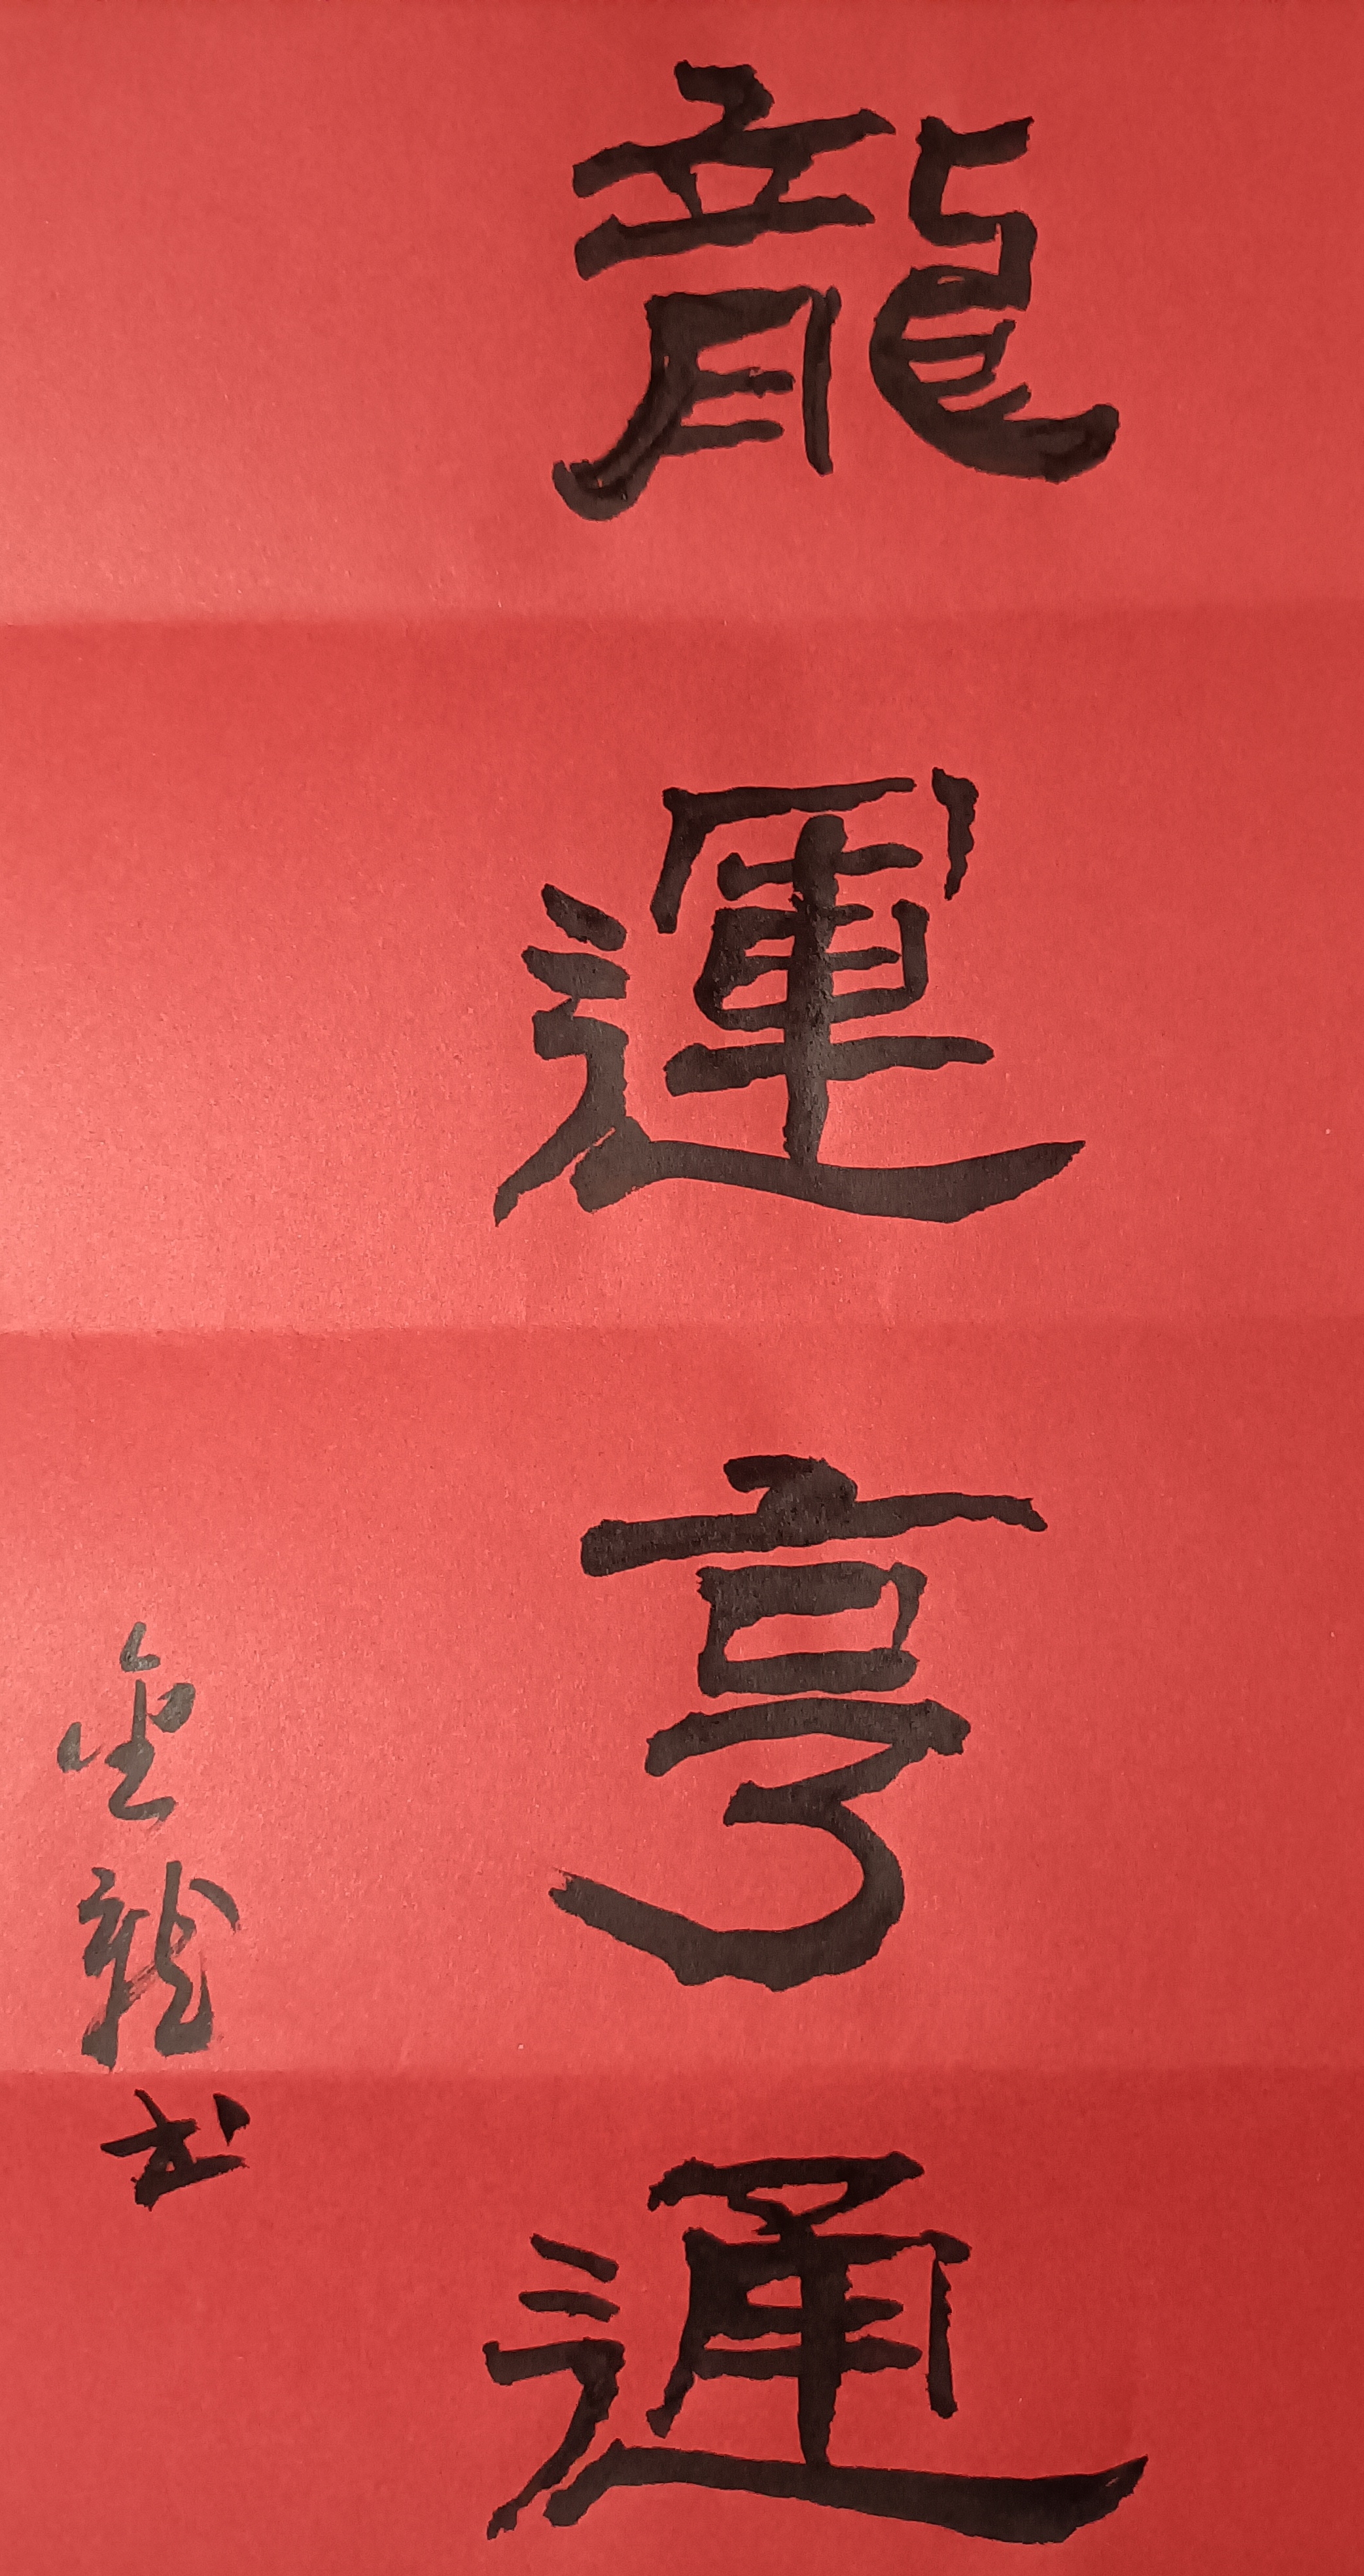 龍運亨通
金龍书